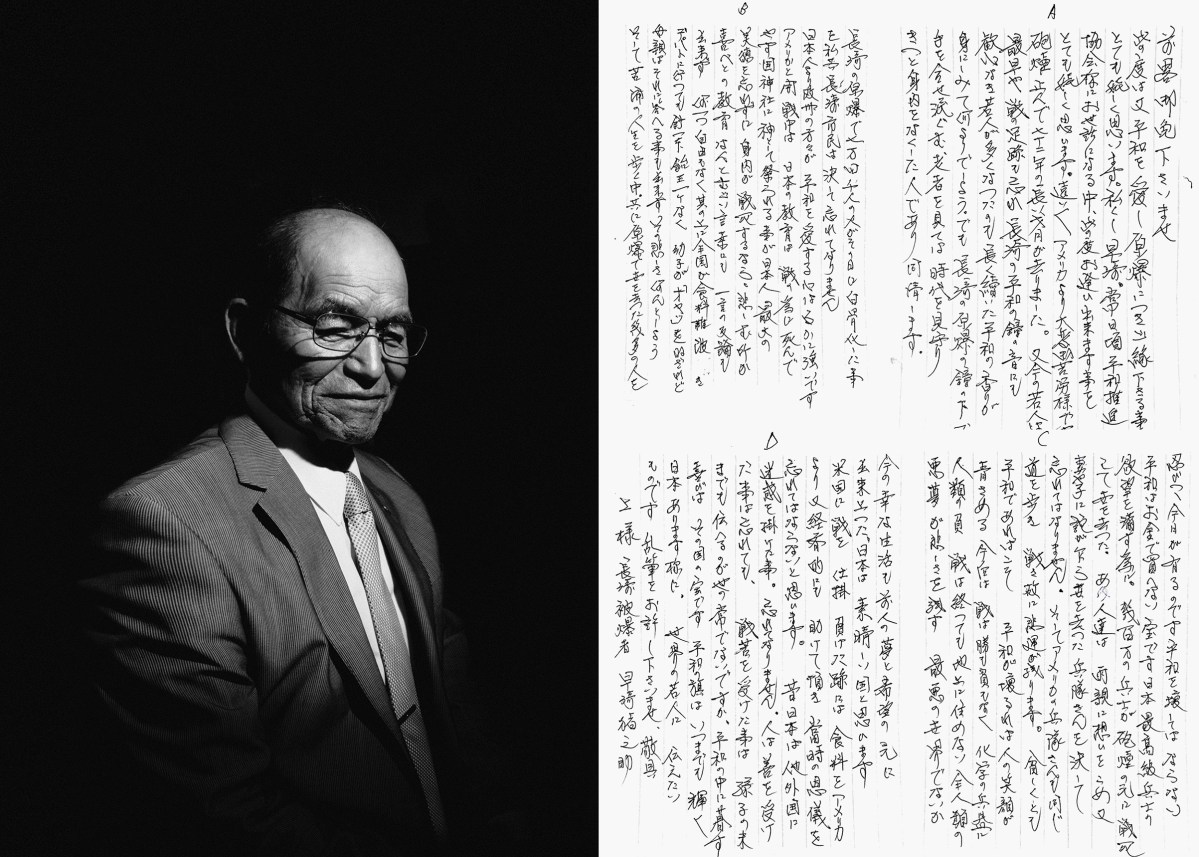 A
前畧御免下さいませ
此の度は又平和を愛し原爆につき御縁下さる事
とても嬉しく思います。私くし早崎。常日頃平和推進
協会様にお世話になる中、此の度お逢い出来ます事を
とても嬉しく思います。遠いアメリカより大変御苦労様です
砲煙止んで七十二年の長い歳月が去りました。又今の若人は
最早や戦の足跡も忘れ長崎の平和の鐘の音にも
なき若人が多くなったのも長く続いた平和の香りが
身にしみて何よりでしょう。でも長崎の原爆の鐘の下で
手を合せ涙ぐむ老者を見ては時代を見守り
きっと身内をなくした人であり同情します。
B
長崎の原爆で七万四千人の人がその日に白骨化した事
を私等長崎市民は決して忘れてなりません
日本人より欧州の方々が平和を愛する心はるかに強いです
アメリカと対戦中は日本の教育は戦の為に死んで
やす国神社に神として祭られる事が日本人最大の
美徳を忘れずに身内が戦死するなら。悲しむ所か
喜べとの教育なんと悲しい言葉にも一言の反論も
出来ず 何一つ自由もなく其の上に全国が食料難
デパートに行っても針一本飴玉一ツなく 幼子がオヤツをねだれど
母親はそれに答へる事も出来ず その悲しさなんとしよう
そして苦渋の人生を歩く中。共に原爆で世を去った幾多の人を
C
思いつつ今日が有るのです平和を壊してはならない
平和はお金で買へない宝です日本最高級兵士の
欲望を満す為に。数百万の兵士が砲煙の元に戦死
して世を去った。あの人達は両親に想いをこめつつ
妻子に 世を去った兵隊さんを決して
忘れてはなりません。そしてアメリカの兵隊さんも同じ
道を歩き 故に悲運が残ります。貧しくとも
平和であればこそ 平和が壊るれば人の笑顔が
青ざめる 今後は戦は勝も負もなく化学の兵器に
人類の負 戦は終っても地上に住めない全人類の
悪夢が悲しさを残す 最悪の世界でないか
D
今の幸な生活も前人の夢と希望の元に
出来上った。日本は素晴しい国と思います
米国に戦を仕掛 負けた跡には食料をアメリカ
より又経済的にも助けて頂き当時の恩儀を
忘れてはならないと思います。昔日本は他外国に
迷惑を掛けた事。忘れてなりません。人は善を受け
た事は忘れても、戦苦を受けた事は孫子の末
までも伝へるのが世の常でないですか、平和の中に暮す
喜びは その国の宝です 平和の旗はいつまでも輝く
日本でありますす様に。世界の若人に伝えたい
ものです 乱筆をお許し下さいませ、敬具
上様 長崎被爆者 早崎猪之助